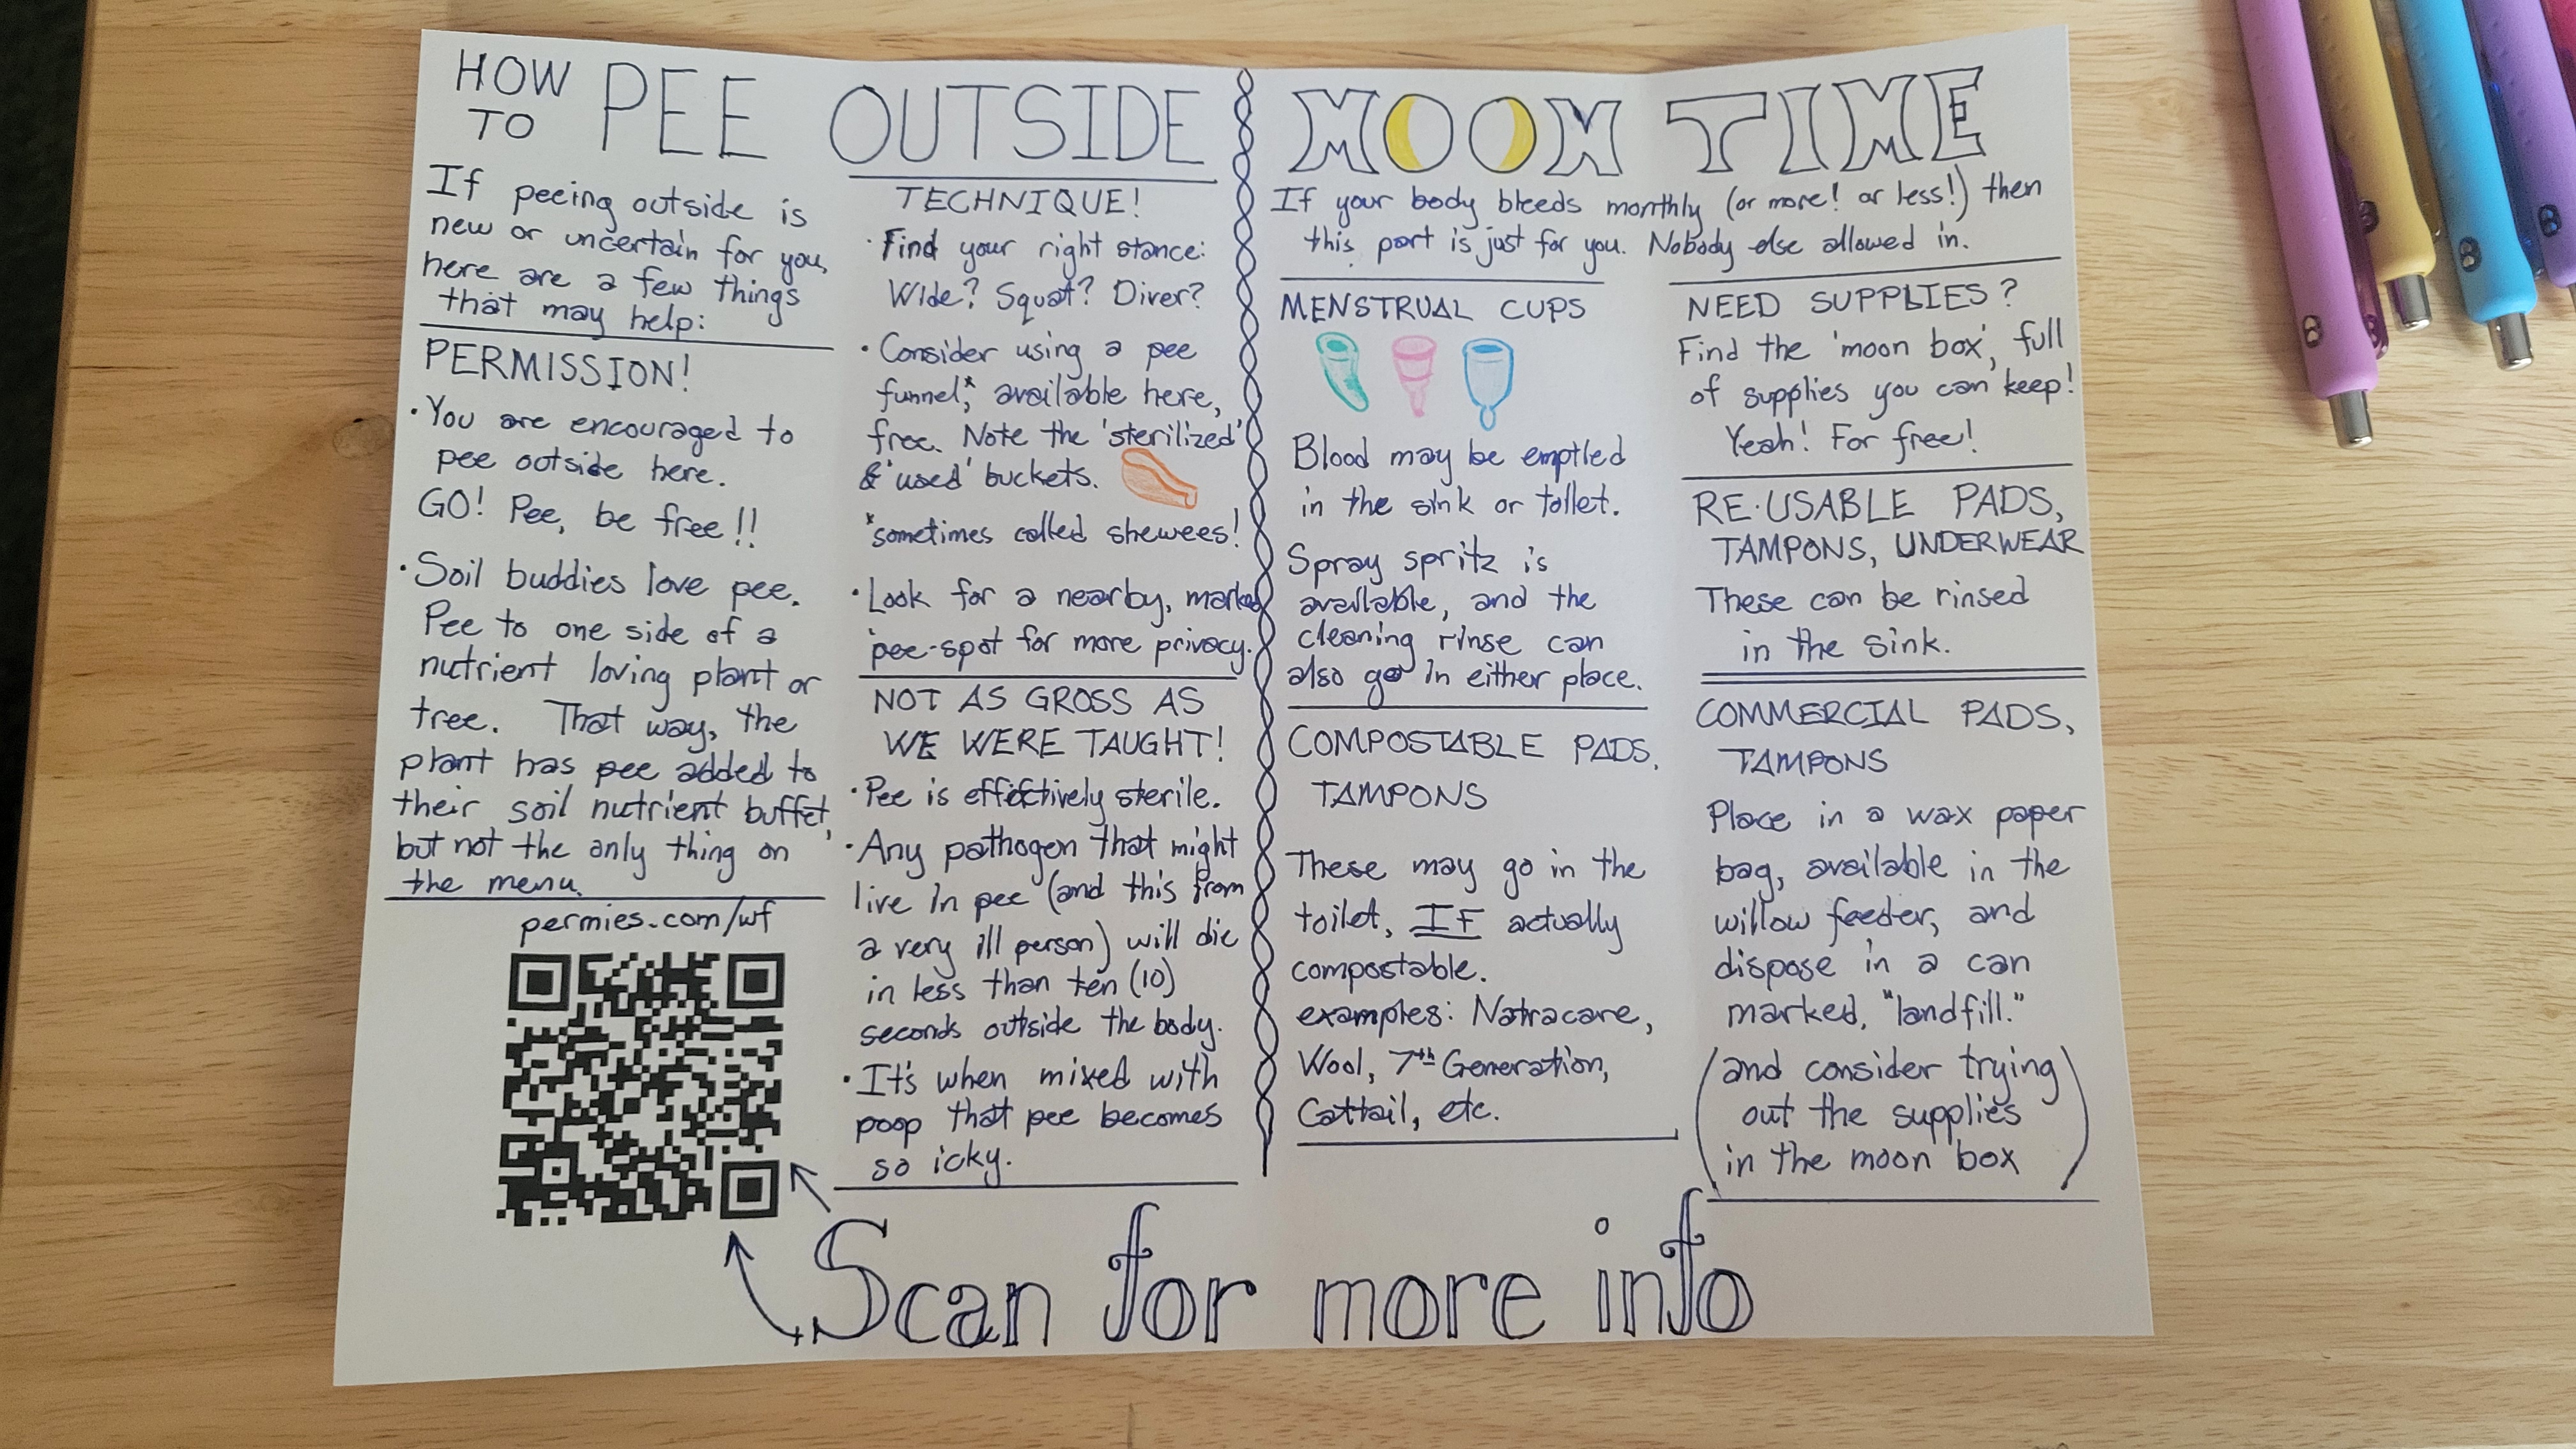 HOW TO PEE OUTSIDE
If peeing outside is
new or uncertain for you,
here are a few things
that may help:
PERMISSION!
· You are encouraged to
pee outside here.
GO! Pee, be free!!
· Soil buddies love pee.
Pee to one side of a
nutrient loving plant or
tree. That way, the
plant has pee added to
their soil nutrient buffet,
but not the only thing on
the menu.
permies.com/wf
TECHNIQUE!
· Find your right stance:
Wide? Squat? Diver?
· Consider using a pee
funnel*, available here,
free. Note the 'sterilized'
& 'used' buckets.
*sometimes called shewees!
· Look for a nearby, marked
pee-spot for more privacy.
NOT AS GROSS AS
WE WERE TAUGHT!
· Pee is effectively sterile.
· Any pathogen that might
live in pee (and this from
a very ill person) will die
in less than ten (10)
seconds outside the body.
· It's when mixed with
poop that pee becomes
so icky.
MOON TIME
If your body bleeds monthly (or more! or less!) then
this part is just for you. Nobody else allowed in.
MENSTRUAL CUPS
Blood may be emptied
in the sink or toilet.
Spray spritz is
available, and the
cleaning rinse can
also go in either place.
COMPOSTABLE PADS,
TAMPONS
These may go in the
toilet, IF actually
compostable.
examples: Natracare,
Wool, 7th Generation,
Cattail, etc.
NEED SUPPLIES?
Find the 'moon box', full
of supplies you can keep!
Yeah! For free!
RE-USABLE PADS,
TAMPONS, UNDERWEAR
These can be rinsed
in the sink.
COMMERCIAL PADS,
TAMPONS
Place in a wax paper
bag, available in the
willow feeder, and
dispose in a can
marked, "landfill."
(and consider trying
out the supplies
in the moon box)
Scan for more info